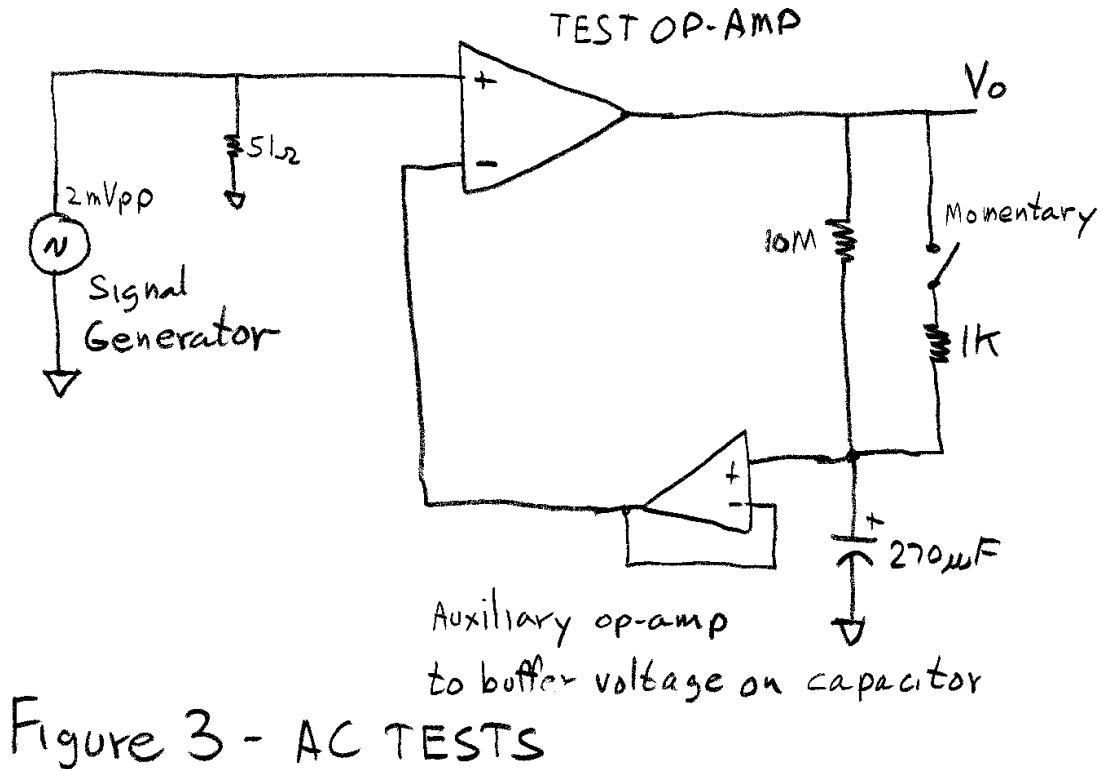 TEST OP-AMP
+
−
Vo
51Ω
2mVpp
N
Signal
Generator
10M
Momentary
1K
+
-
+
270μF
Auxiliary op-amp
to buffer voltage on capacitor
Figure 3 - AC TESTS